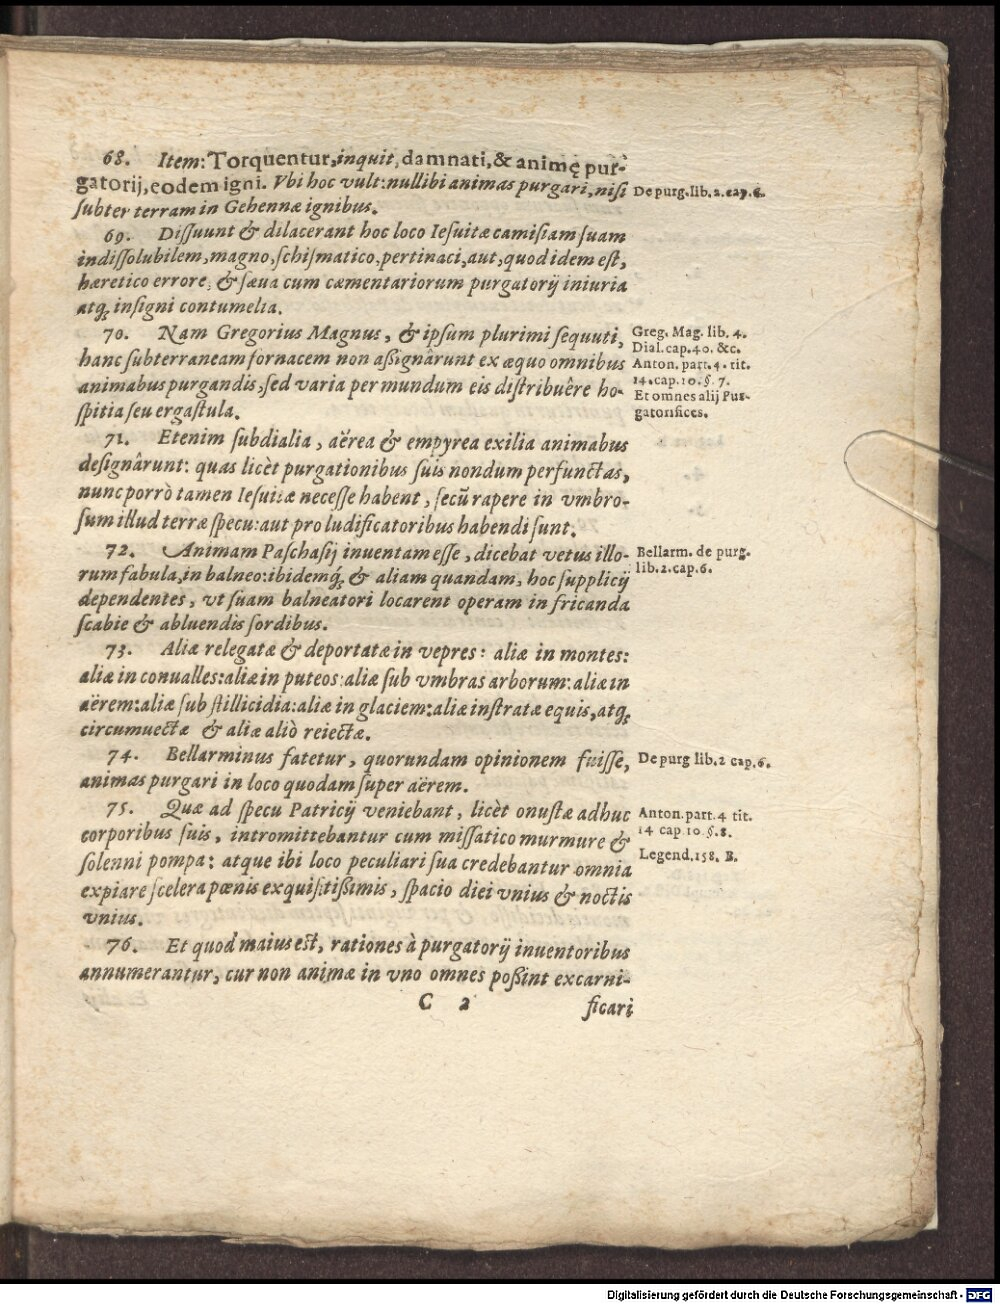 68. Item: Torquentur, inquit, damnati, & animę pur-
gatorij, eodem igni. Vbi hoc vult: nullibi animas purgari, niſi
De purg. lib. 2. cap. 6.
ſubter terram in Gehennæ ignibus.
69. Diſſuunt & dilacerant hoc loco Ieſuitæ camiſiam ſuam
indiſſolubilem, magno, ſchiſmatico, pertinaci, aut, quod idem eſt,
hæretico errore, & ſæua cum cæmentariorum purgatorij iniuria
atq; inſigni contumelia.
70. Nam Gregorius Magnus, & ipſum plurimi ſequuti,
hanc ſubterraneam fornacem non aßignârunt ex æquo omnibus
animabus purgandis, ſed varia per mundum eis diſtribuêre ho-
ſpitia ſeu ergaſtula.
Greg. Mag. lib. 4.
Dial. cap. 40. &c.
Anton. part. 4. tit.
14. cap. 10. §. 7.
Et omnes alij Pur-
gatorifices.
71. Etenim ſubdialia, aërea & empyrea exilia animabus
deſignârunt: quas licèt purgationibus ſuis nondum perfunctas,
nunc porrò tamen Ieſuitæ neceſſe habent, ſecũ rapere in vmbro-
ſum illud terræ ſpecu: aut pro ludificatoribus habendi ſunt.
72. Animam Paſchaſij inuentam eſſe, dicebat vetus illo-
rum fabula, in balneo: ibidemq́; & aliam quandam, hoc ſupplicij
dependentes, vt ſuam balneatori locarent operam in fricanda
ſcabie & abluendis ſordibus.
Bellarm. de purg.
lib. 2. cap. 6.
73. Aliæ relegatæ & deportatæ in vepres: aliæ in montes:
aliæ in conualles: aliæ in puteos: aliæ ſub vmbras arborum: aliæ in
aërem: aliæ ſub ſtillicidia: aliæ in glaciem: aliæ inſtratæ equis, atq;
circumuectæ & aliæ aliò reiectæ.
74. Bellarminus fatetur, quorundam opinionem fuiſſe,
De purg lib. 2 cap. 6.
animas purgari in loco quodam ſuper aërem.
75. Quæ ad ſpecu Patricij veniebant, licèt onuſtæ adhuc
corporibus ſuis, intromittebantur cum miſſatico murmure &
ſolenni pompa: atque ibi loco peculiari ſua credebantur omnia
expiare ſcelera pœnis exquiſitißimis, ſpacio diei vnius & noctis
vnius.
Anton. part. 4 tit.
14 cap. 10 §. 8.
Legend. 158. B.
76. Et quod maius eſt, rationes à purgatorij inuentoribus
annumerantur, cur non animæ in vno omnes poßint excarni-
C 2
ficari
Digitalisierung gefördert durch die Deutsche Forschungsgemeinschaft - DFG